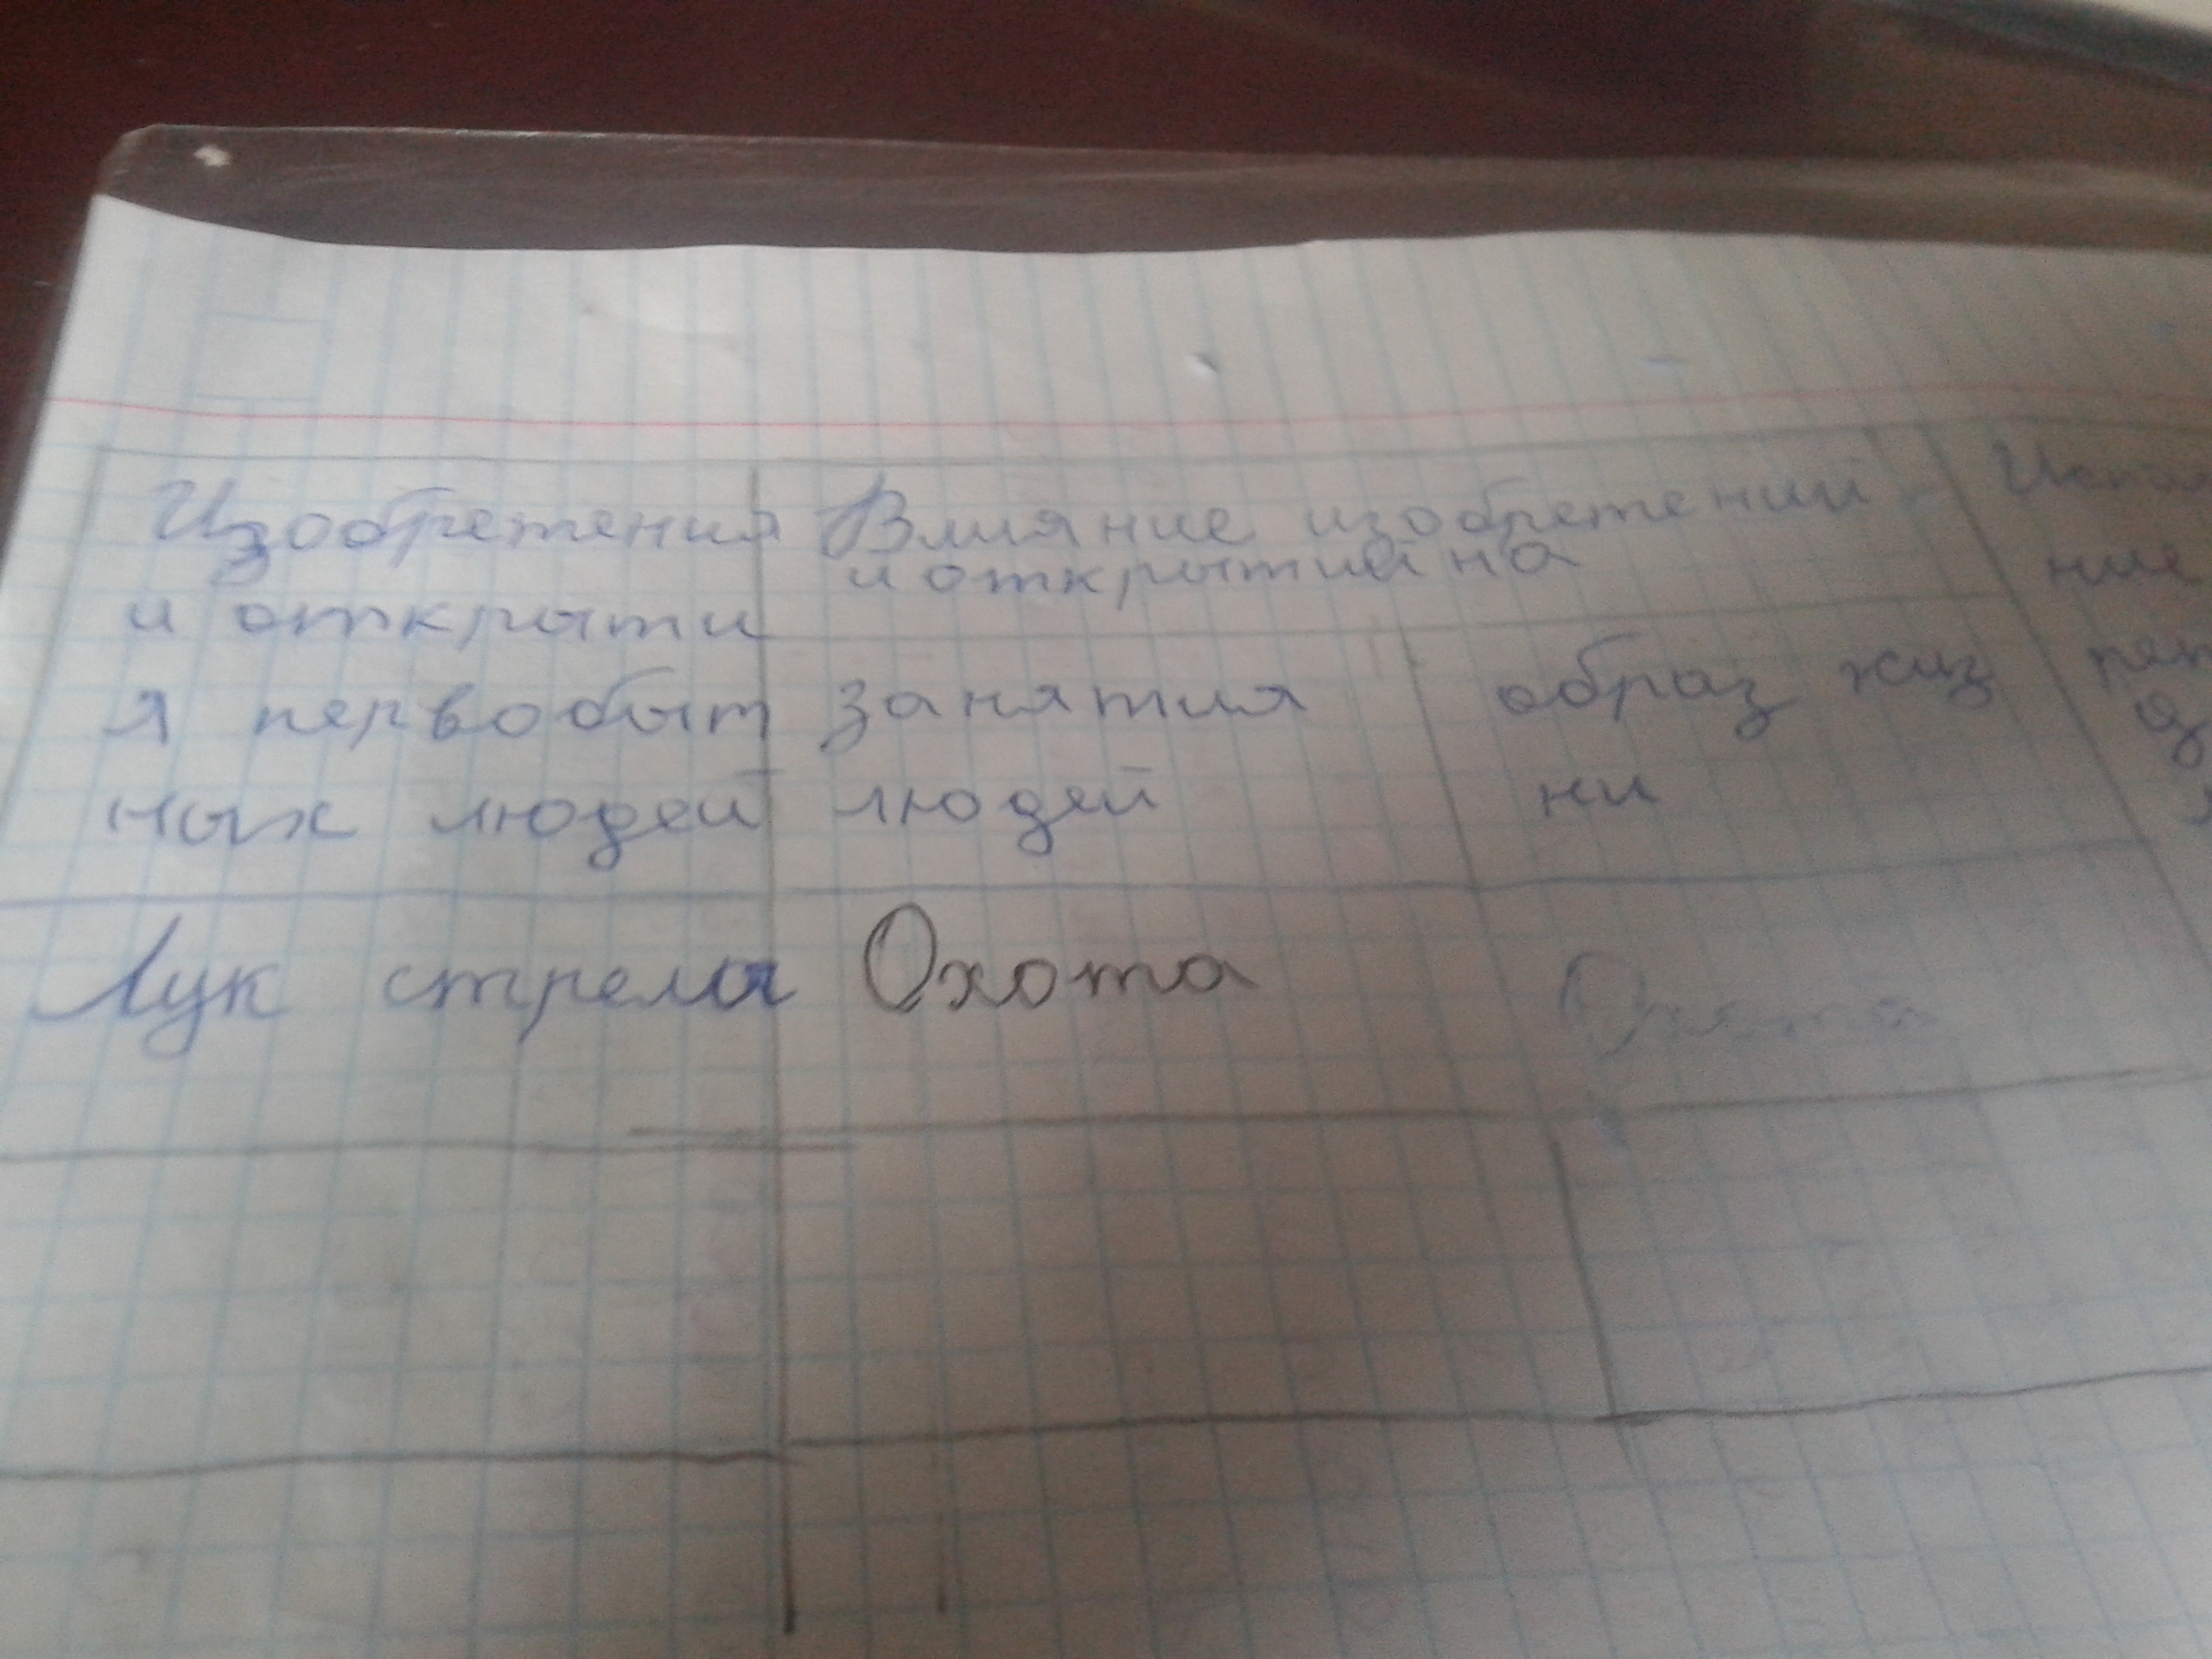 Изобретения
и открыти
я первобыт
ных людей
Влияние изобретений
и открытий на
занятия
людей
образ жиз
ни
ние
Лук стрела
Охота
Охота